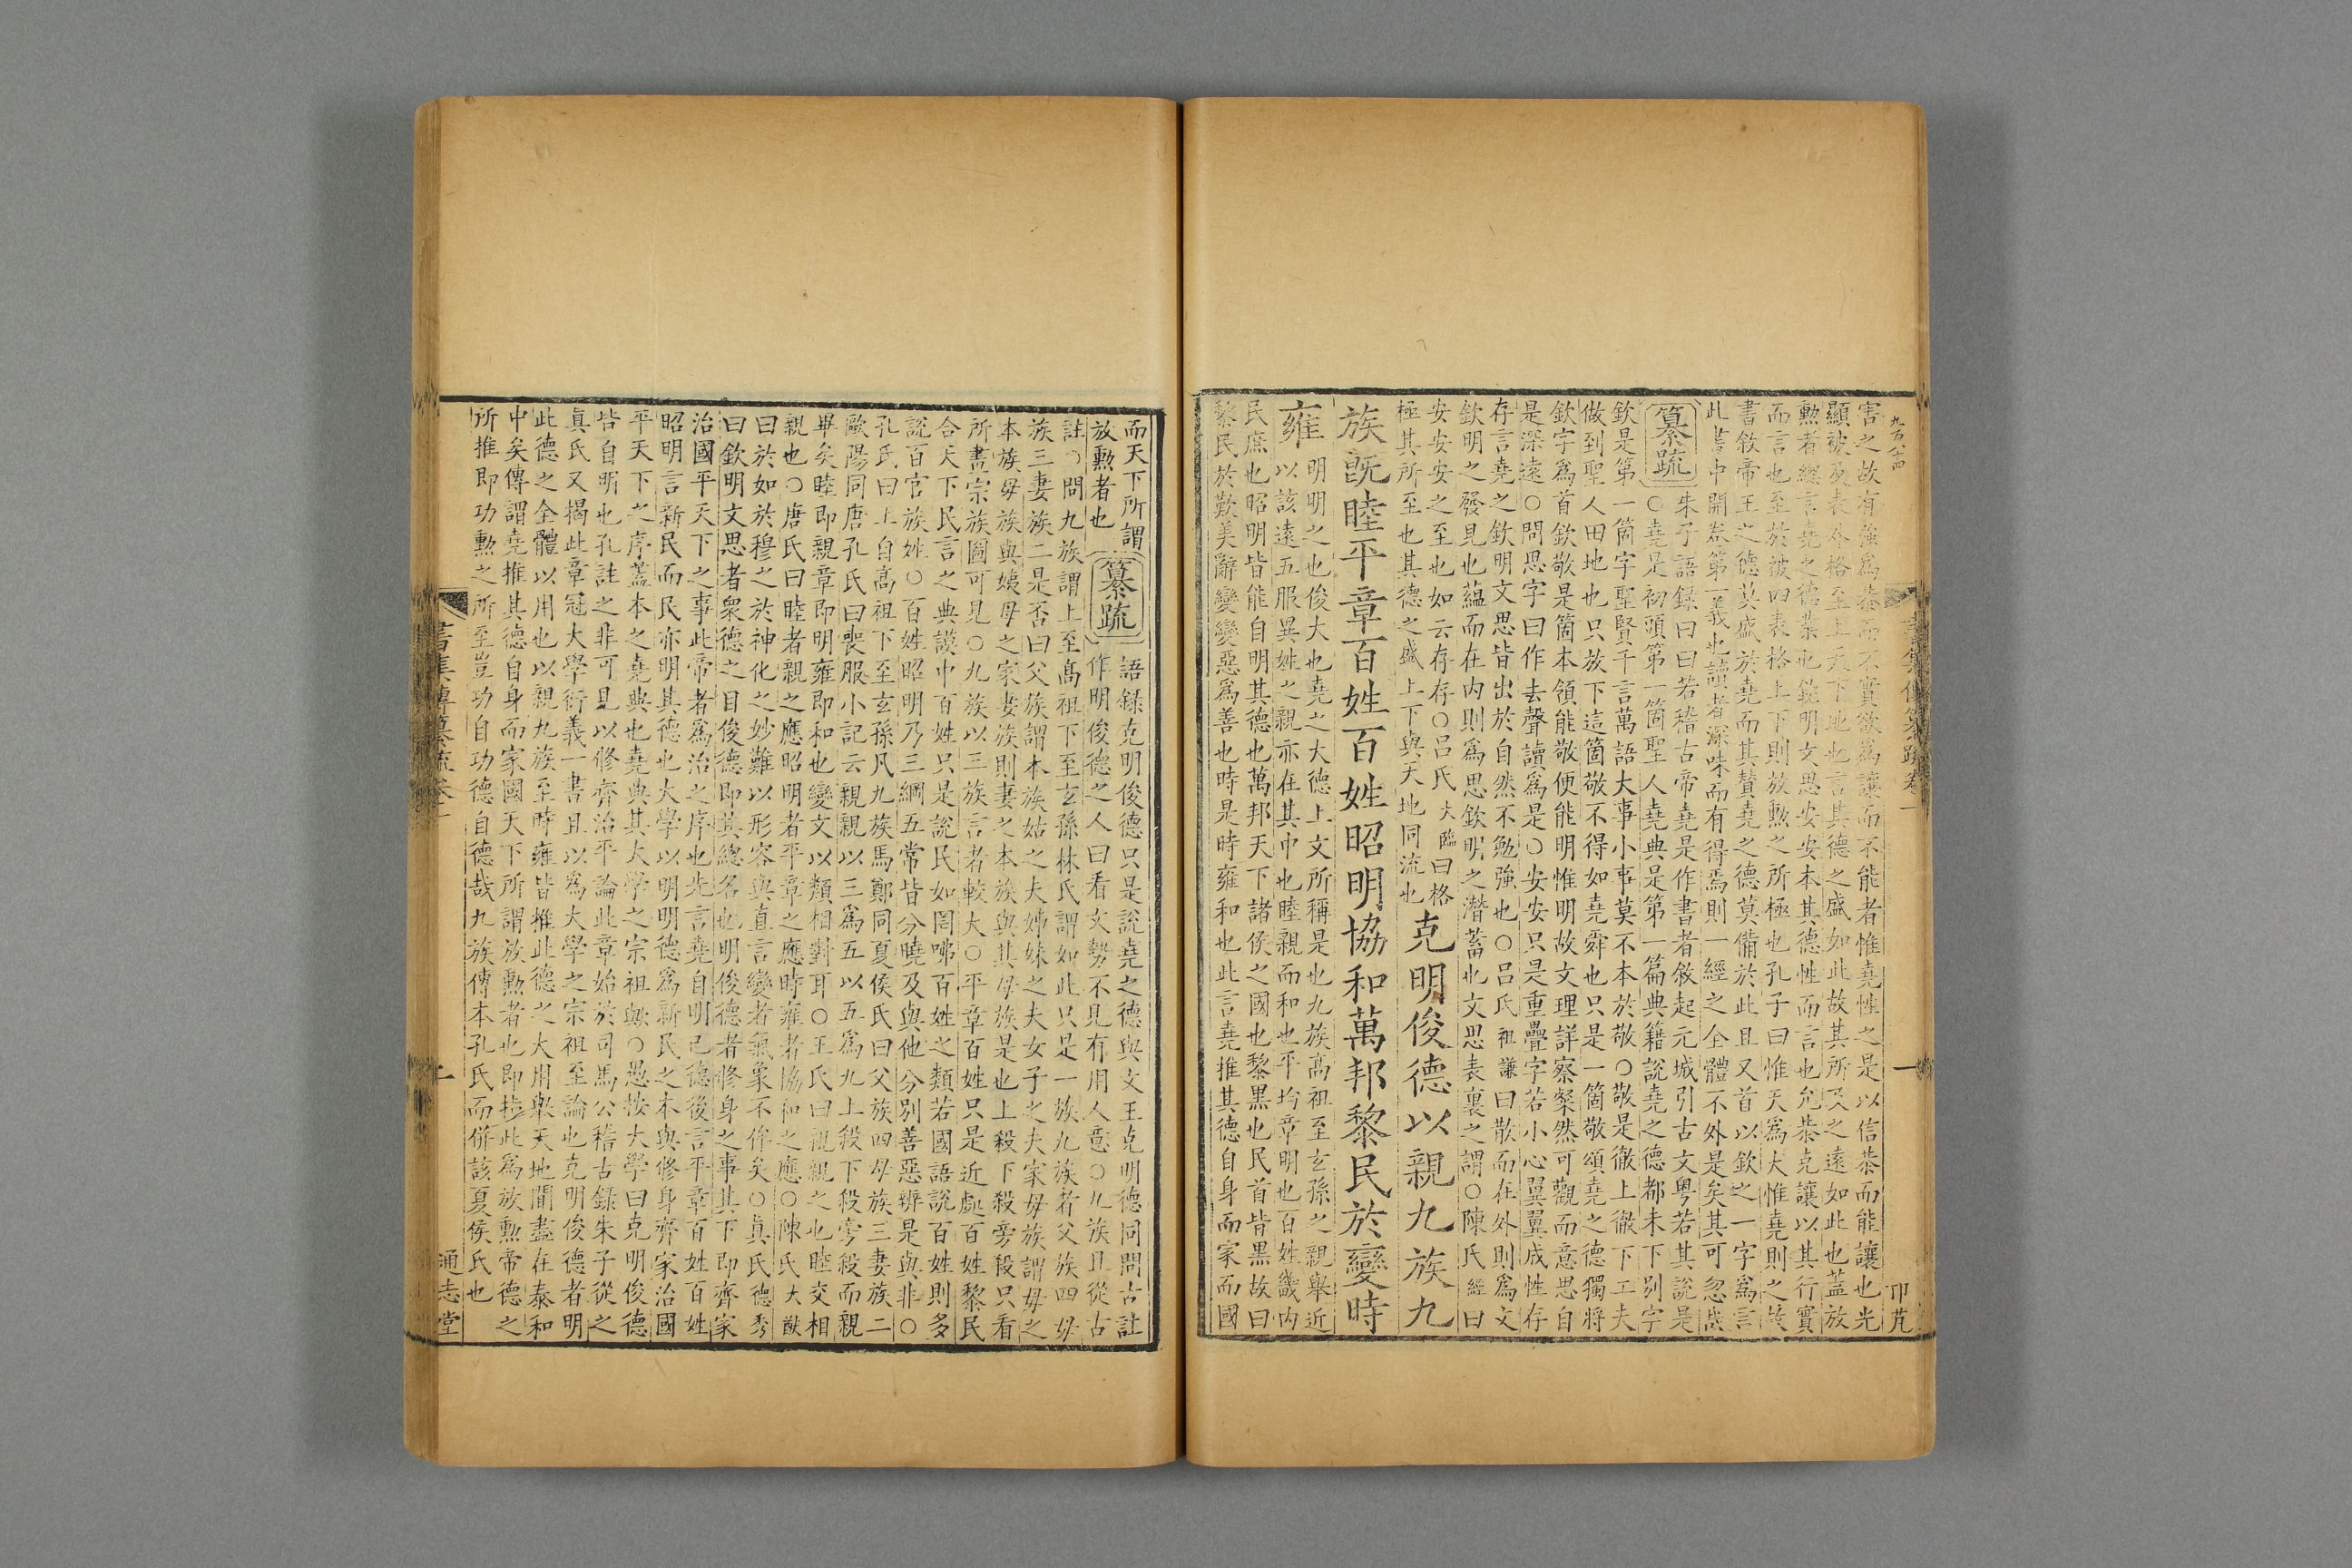 九百八十四
害之故有強爲恭而不實欲爲讓而不能者惟堯性之是以信恭而能讓也光
顯被及表外格至上天下地也言其德之盛如此故其所及之遠如此也蓋放
勲者總言堯之德業也欽明文思安安本其德性而言也允恭克讓以其行實
而言也至於被四表格上下則放勲之所極也孔子曰惟天爲大惟堯則之故
書敘帝王之德莫盛於堯而其贊堯之德莫備於此且又首以欽之一字爲言
此書中開卷第一義也讀者深味而有得焉則一經之全體不外是矣其可忽哉
纂疏
朱子語錄曰曰若稽古帝堯是作書者敘起元城引古文粤若其說是
○堯是初頭第一箇聖人堯典是第一篇典籍說堯之德都未下別字
欽是第一箇字聖賢千言萬語大事小事莫不本於敬○敬是徹上徹下工夫
做到聖人田地也只放下這箇敬不得如堯舜也只是一箇敬頌堯之德獨將
欽字爲首欽敬是箇本領能敬便能明惟明故文理詳察粲然可觀而意思自
是深遠○問思字曰作去聲讀爲是○安安只是重疊字若小心翼翼成性存
存言堯之欽明文思皆出於自然不勉強也○吕氏祖謙曰散而在外則爲文
欽明之發見也藴而在内則爲思欽明之潛蓄也文思表裏之謂○陳氏經曰
安安安之至也如云存存○吕氏大臨曰格
極其所至也其德之盛上下與天地同流也
克明俊德以親九族九
族旣睦平章百姓百姓昭明協和萬邦黎民於變時
雍
明明之也俊大也堯之大德上文所稱是也九族高祖至玄孫之親舉近
以該遠五服異姓之親亦在其中也睦親而和也平均章明也百姓畿内
民庶也昭明皆能自明其德也萬邦天下諸侯之國也黎黒也民首皆黒故曰
黎民於歎美辭變變惡爲善也時是時雍和也此言堯推其德自身而家而國
書集傳纂疏卷一
一
卭芃
而天下所謂
放勲者也
纂疏
語録克明俊德只是說堯之德與文王克明德同問古註
作明俊德之人曰看文勢不見有用人意○九族且從古
註○問九族謂上至高祖下至玄孫林氏謂如此只是一族九族者父族四母
族三妻族二是否曰父族謂本族姑之夫姊妹之夫女子之夫家母族謂母之
本族母族與姨母之家妻族則妻之本族與其母族是也上殺下殺旁殺只看
所畫宗族圖可見○九族以三族言者較大○平章百姓只是近處百姓黎民
合天下民言之典謨中百姓只是說民如罔咈百姓之類若國語說百姓則多
說百官族姓○百姓昭明乃三綱五常皆分曉及與他分別善惡辨是與非○
孔氏曰上自高祖下至玄孫凡九族馬鄭同夏侯氏曰父族四母族三妻族二
歐陽同唐孔氏曰喪服小記云親親以三爲五以五爲九上殺下殺旁殺而親
畢矣睦即親章即明雍即和也變文以類相對耳○王氏曰親親之也睦交相
親也○唐氏曰睦者親之應昭明者平章之應時雍者協和之應○陳氏大猷
曰於如於穆之於神化之妙難以形容與直言變者氣象不侔矣○眞氏德秀
曰欽明文思者衆德之目俊德即其總名也明俊德者修身之事其下即齊家
治國平天下之事此帝者爲治之序也先言堯自明己德後言平章百姓百姓
昭明言新民而民亦明其德也大學以明明德爲新民之本與修身齊家治國
平天下之序蓋本之堯典也堯典其大學之宗祖歟○愚按大學曰克明俊德
皆自明也孔註之非可見以修齊治平論此章始於司馬公稽古錄朱子從之
眞氏又揭此章冠大學衍義一書且以爲大學之宗祖至論也克明俊德者明
此德之全體以用也以親九族至時雍皆推此德之大用歟天地間盡在泰和
中矣傳謂堯推其德自身而家國天下所謂放勲者也即指此爲放勲帝德之
所推即功勲之所至豈功自功德自德哉九族傳本孔氏而併該夏侯氏也
書集傳纂疏卷一
二
通志堂